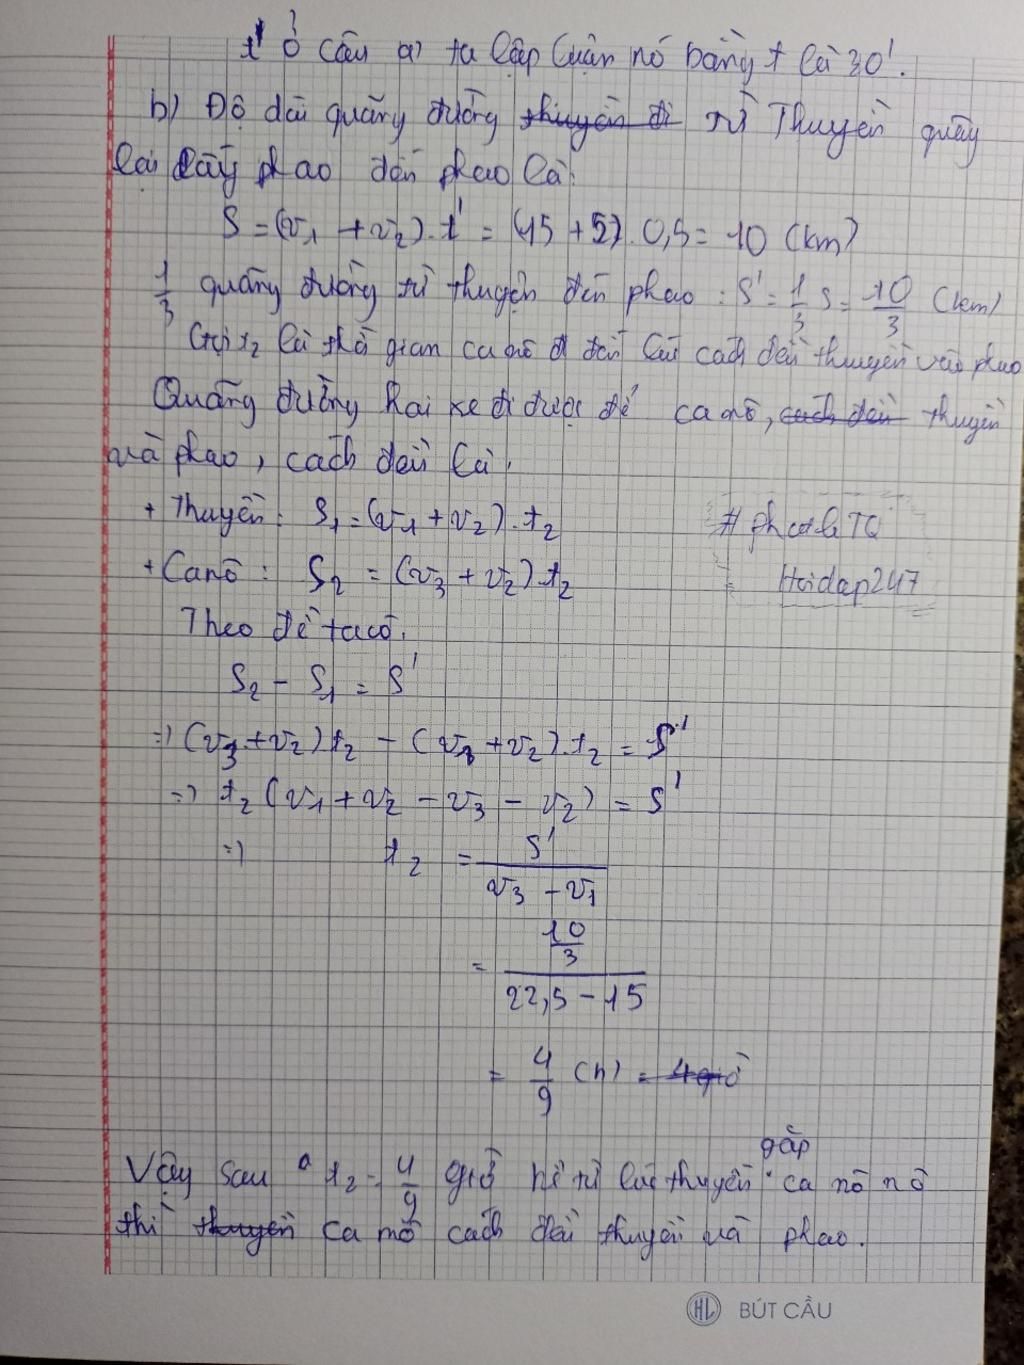 t' ở câu a) ta lập luận nó bằng t là 30'.
b) Độ dài quãng đường thuyền đi từ Thuyền quay
lại lấy phao đến phao là:
S = (v₁ + v₂).t' = (15 + 5).0,5 = 10 (km)
1/3 quãng đường từ thuyền đến phao : S' = 1/3 S = 10/3 (km)
Gọi t₂ là thời gian ca nô đi đến lúc cách đều thuyền và phao
Quãng đường hai xe đi được để ca nô, cách đều thuyền
và phao, cách đều là.
+ Thuyền: S₁ = (v₁ + v₂).t₂
# phcateTQ
+ Canô : S₂ = (v₃ + v₂)t₂
Hoidap247
Theo đề ta có.
S₂ - S₁ = S'
=> (v₃ + v₂)t₂ - (v₁ + v₂).t₂ = S'
=> t₂ (v₁ + v₂ - v₃ - v₂) = S'
=> t₂ = S' / (v₃ - v₁)
= (10/3) / (22,5 - 15)
= 4/9 (h) = 4 giờ
gặp
Vậy sau t₂ = 4/9 giờ kể từ lúc thuyền ca nô nô
thì thuyền ca nô cách đều thuyền và phao.
HL BÚT CẦU